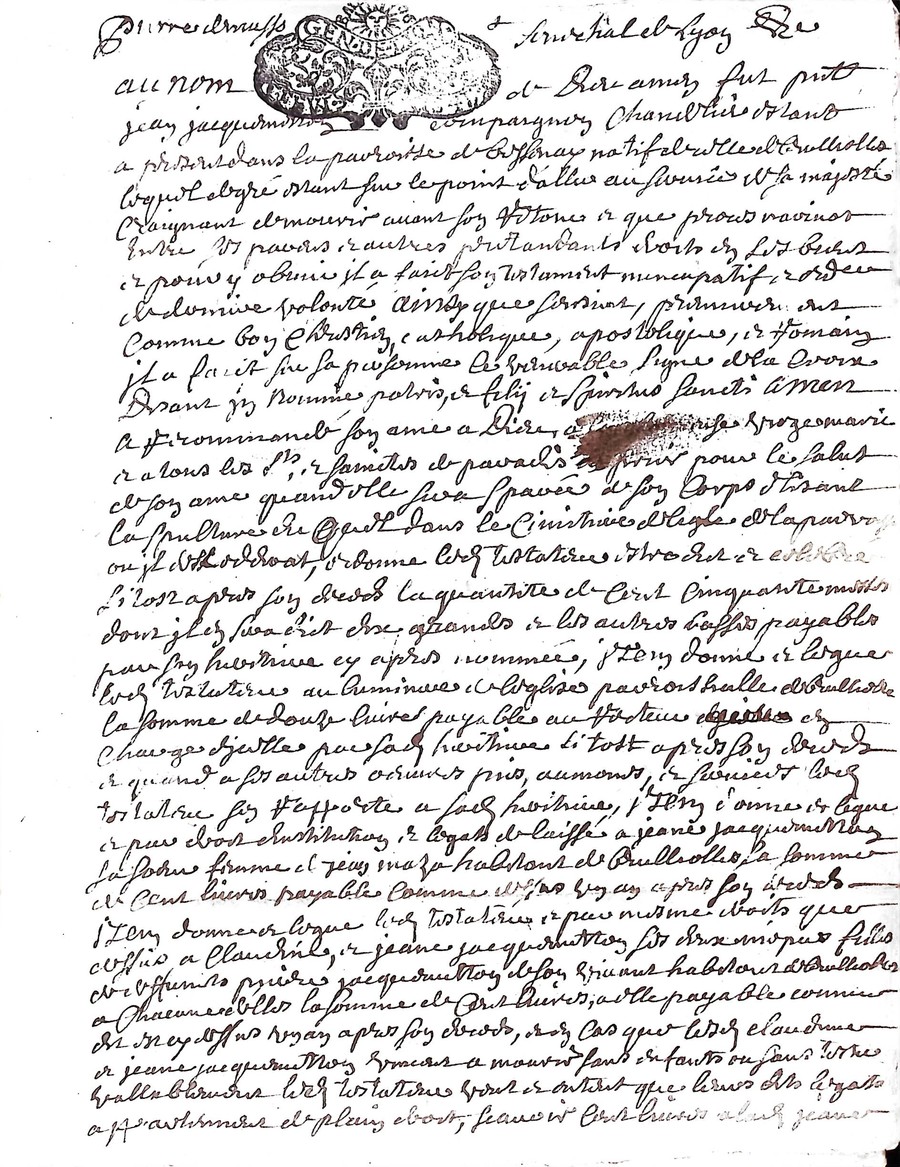 Pierre demasso senechal de Lyon &c
GEN. DE LYON
au nom de Dieu amen fut pnt
jean jacquemetton compaignon Chandelier estant
a present dans la parroisse de bessenay natif de celle de brullioles
lequel de gré estant sur le point d'aller au service de sa majesté
Craignant de mourir avant son retour et que proces navinat
entre ses parens et autres pretandants droits en ses biens
et pour y obvier il a faict son testament nuncupatif et ordce
de derniere volonté ainsy que sensuit, premierement
Comme bon Chrestien, catholique, apostolique, et romain
jl a faict sur sa personne le venerable signe de la Croix
Disant jn nomine patris, et filij et spiritus sancti amen
a recommandé son ame a Dieu, a vierge marie
et a tous les sts, et sainctes de paradis prier pour le salut
de son ame quand elle sera sparée de son Corps elisant
la spulture dicelluy dans le Cimitiere de leglise de la parroisse
ou jl decedera, et donne led testateur et
sitost apres son deces la quantite de Cent Cinquante messes
dont jl en sera dict dix grandes et les autres basses payables
par son heritiere cy apres nommée, jtem donne et legue
led testateur au luminaire de leglise parroishialle de brullioles
la somme de douze livres payable au recteur en
Charge dicelle par sad heritiere sitost apres son deces
et quand a ses autres oeuvres pies, aumones, et services led
testateur sen rapporte a sad heritiere, jtem donne et legue
et par droit dinstitution et legat delaissé a jeane jacquemetton
sa soeur femme de jean maza habitant de brullioles la somme
de Cent livres payable comme dessus un an apres son deces
jtem donne et legue led testateur et par mesme droits que
dessus a Claudine, et jeane jacquemetton ses deux niepces filles
de deffunts pierre jacquemetton de son vivant habitant de brullioles
a Chacune delles la somme de Cent livres, a elle payable comme
dit est cy dessus un an apres son deces, et en Cas que lesd claudine
et jeane jacquemetton vinsent a mourir sans enfants ou sans tester
vallablement led testateur veut et entent que leurs dits legats
appartiennent de plain droit, scavoir Cent livres a lad jeane